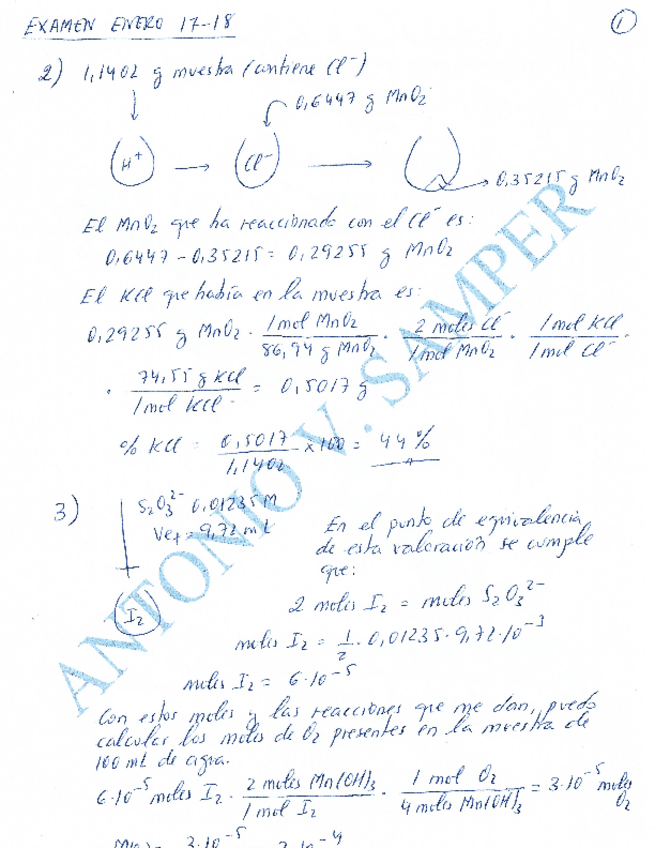 EXAMEN ENERO 17-18
1
2) 1,1402 g muestra (contiene Cl⁻)
0,6447 g MnO₂
H⁺ → Cl⁻ →
0,35215 g MnO₂
El MnO₂ que ha reaccionado con el Cl⁻ es:
0,6447 - 0,35215 = 0,29255 g MnO₂
El KCl que había en la muestra es:
0,29255 g MnO₂ · 1 mol MnO₂ / 86,94 g MnO₂ · 2 moles Cl⁻ / 1 mol MnO₂ · 1 mol KCl / 1 mol Cl⁻ ·
· 74,55 g KCl / 1 mol KCl = 0,5017 g
% KCl = 0,5017 / 1,1402 × 100 = 44%
3) S₂O₃²⁻ 0,01235 M
= 9,72 ml
I₂
En el punto de equivalencia
de esta valoración se cumple
que:
2 moles I₂ = moles S₂O₃²⁻
moles I₂ = 1/2 · 0,01235 · 9,72 · 10⁻³
moles I₂ = 6·10⁻⁵
Con estos moles y las reacciones que me dan, puedo
calcular los moles de O₂ presentes en la muestra de
100 ml de agua.
6·10⁻⁵ moles I₂ · 2 moles Mn(OH)₃ / 1 mol I₂ · 1 mol O₂ / 4 moles Mn(OH)₃ = 3·10⁻⁵ moles O₂
3·10⁻⁵
ANTONIO V. SAMPER